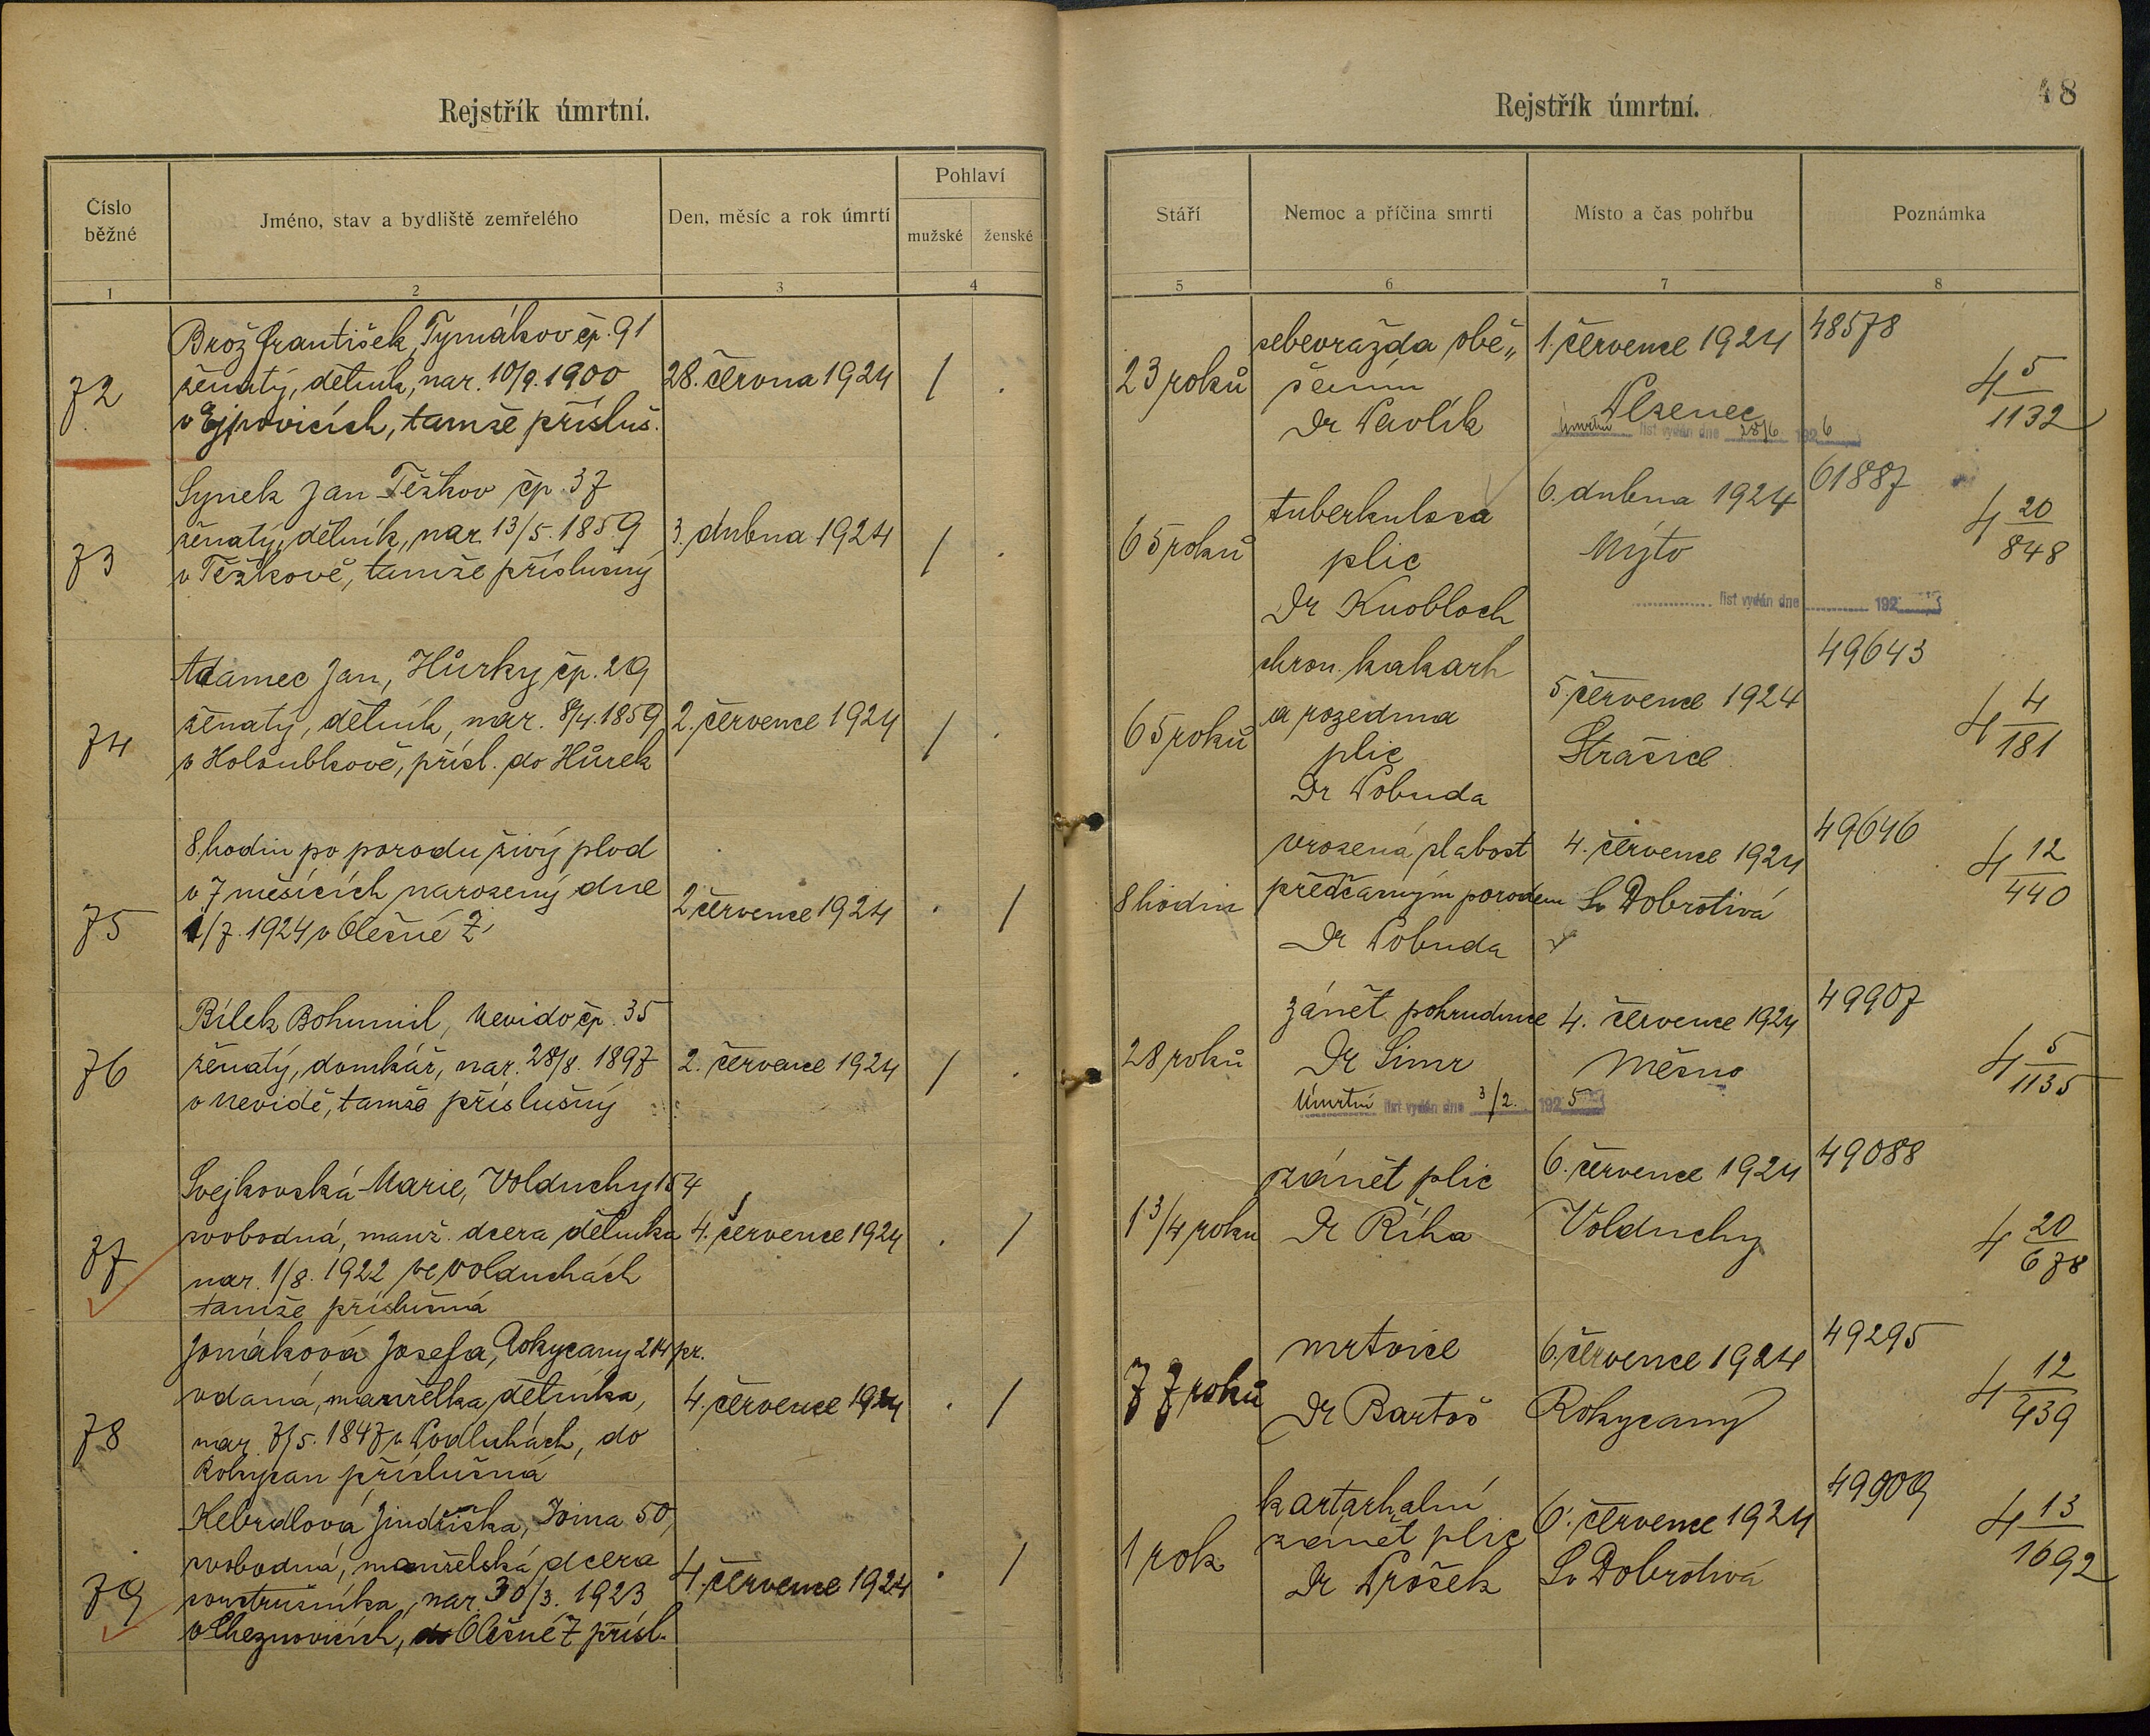 Rejstřík úmrtní.
Číslo běžné
Jméno, stav a bydliště zemřelého
Den, měsíc a rok úmrtí
Pohlaví
mužské
ženské
1
2
3
4
72
Brož František, Tymákov čp. 91
ženatý, dělník, nar. 10/9. 1900
v Ejpovicích, tamže přísluš.
28. června 1924
/
.
73
Synek Jan Těškov čp. 37
ženatý, dělník, nar. 13/5. 1859
v Těškově, tamže příslušný
3. dubna 1924
/
.
74
Adamec Jan, Hůrky čp. 29
ženatý, dělník, nar. 8/4. 1859
v Holoubkově, přísl. do Hůrek
2. července 1924
/
.
75
8 hodin po porodu živý plod
v 7 měsících narozený dne
1/7. 1924 v Olešné
2 července 1924
.
/
76
Bílek Bohumil, Nevido čp. 35
ženatý, domkář, nar. 28/8. 1897
v Nevidě, tamže příslušný
2. července 1924
/
.
77
Svejkovská Marie, Volduchy 154
svobodná, manž. dcera dělníka
nar. 1/8. 1922 ve Volduchách
tamže příslušná
4. července 1924
.
/
78
Josefa, Rokycany pr.
vdaná, manželka dělníka,
nar. 7/5. 1847 v Podluhách, do
Rokycan příslušná
4. července 1924
.
/
79
Kebrdlová Jindřiška, 50,
svobodná, manželská dcera
soustružníka, nar. 30/3. 1923
v Cheznovicích, do Olešné přísl.
4. července 1924
.
/
Rejstřík úmrtní.
48
Stáří
Nemoc a příčina smrti
Místo a čas pohřbu
Poznámka
5
6
7
8
23 roků
sebevražda obě„
šením
Dr Pavlík
1. července 1924
Plzenec
Úmrtní list vydán dne 28/6 1926
48578
4 5/1132
65 roků
tuberkulosa
plic
Dr Knobloch
6. dubna 1924
Mýto
list vydán dne 192
61887
4 20/848
65 roků
chron. katarh
a rozedma
plic
Dr Pobuda
5. července 1924
Strašice
49643
4 4/181
8 hodin
vrozená slabost
předčasným porodem
Dr Pobuda
4. července 1924
Sv Dobrotivá
49646
4 12/440
28 roků
zánět pohrudnice
Dr Simr
Úmrtní list vydán dne 3/2. 1925
4. července 1924
Měsno
49907
4 5/1135
1 3/4 roku
zánět plic
Dr Říha
6. července 1924
Volduchy
49088
4 20/678
77 roků
mrtvice
Dr Bartoš
6. července 1924
Rokycany
49295
4 12/439
1 rok
kartarhalní
zánět plic
Dr Prošek
6. července 1924
Sv Dobrotivá
49909
4 13/1692